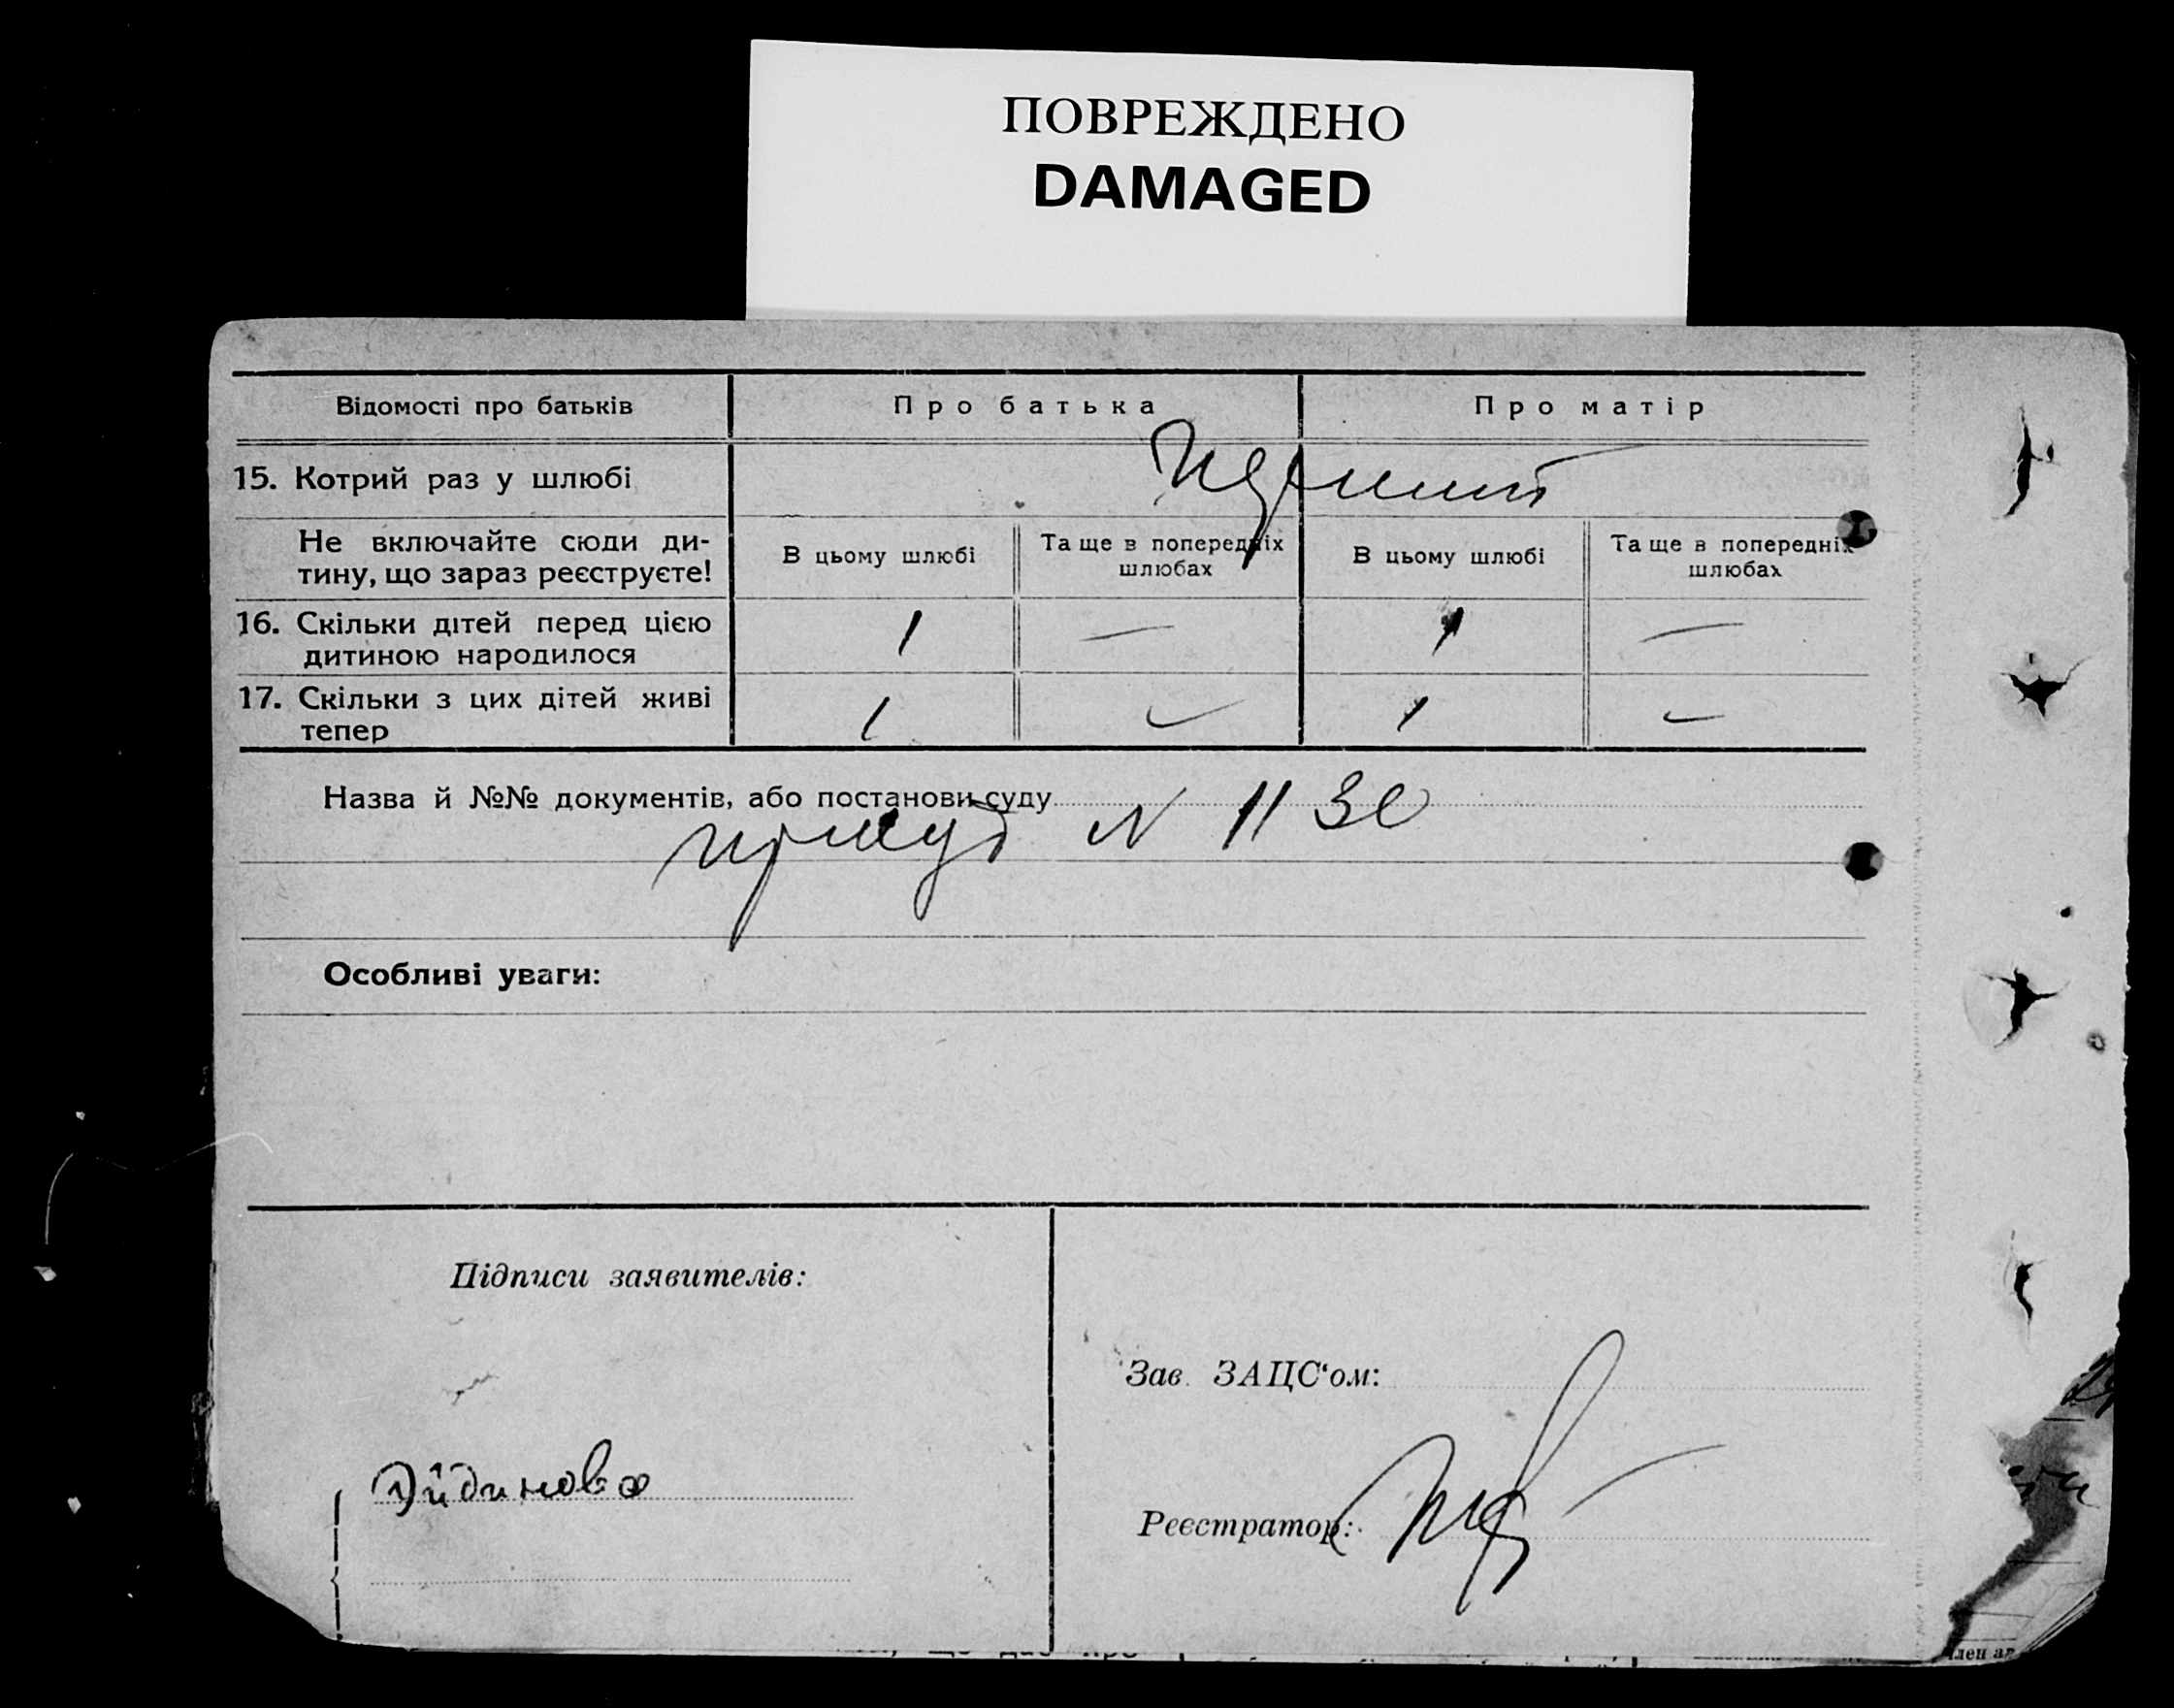 ПОВРЕЖДЕНО
DAMAGED
Відомості про батьків
Про батька
Про матір
15. Котрий раз у шлюбі
Не включайте сюди ди-
тину, що зараз реєструєте!
В цьому шлюбі
Та ще в попередніх
шлюбах
В цьому шлюбі
Та ще в попередніх
шлюбах
16. Скільки дітей перед цією
дитиною народилося
1 — 1 —
17. Скільки з цих дітей живі
тепер
1 — 1 —
Назва й №№ документів, або постанови суду
N 1130
Особливі уваги:
Підписи заявителів:
Зав. ЗАЦС‘ом:
Реєстратор: